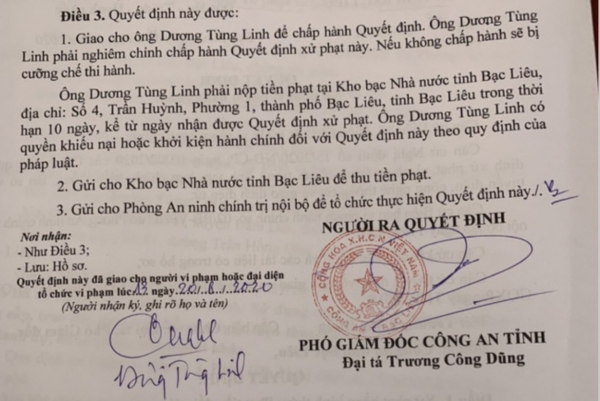 Điều 3. Quyết định này được:
1. Giao cho ông Dương Tùng Linh để chấp hành Quyết định. Ông Dương Tùng
Linh phải nghiêm chỉnh chấp hành Quyết định xử phạt này. Nếu không chấp hành sẽ bị
cưỡng chế thi hành.
Ông Dương Tùng Linh phải nộp tiền phạt tại Kho bạc Nhà nước tỉnh Bạc Liêu,
địa chỉ: Số 4, Trần Huỳnh, Phường 1, thành phố Bạc Liêu, tỉnh Bạc Liêu trong thời
hạn 10 ngày, kể từ ngày nhận được Quyết định xử phạt. Ông Dương Tùng Linh có
quyền khiếu nại hoặc khởi kiện hành chính đối với Quyết định này theo quy định của
pháp luật.
2. Gửi cho Kho bạc Nhà nước tỉnh Bạc Liêu để thu tiền phạt.
3. Gửi cho Phòng An ninh chính trị nội bộ để tổ chức thực hiện Quyết định này./.
NGƯỜI RA QUYẾT ĐỊNH
Nơi nhận:
- Như Điều 3;
- Lưu: Hồ sơ.
Quyết định này đã giao cho người vi phạm hoặc đại diện
tổ chức vi phạm lúc ngày 20/8/2020
(Người nhận ký, ghi rõ họ và tên)
CỘNG HÒA X.H.C.N VIỆT NAM
PHÓ GIÁM ĐỐC CÔNG AN TỈNH
Đại tá Trương Công Dũng
Dương Tùng Linh